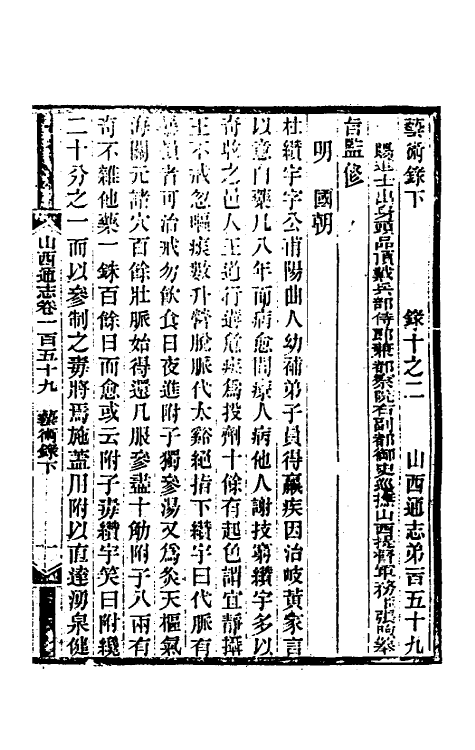 藝術錄下　錄十之二　山西通志弟一百五十九
賜進士出身頭品頂戴兵部侍郎兼都察院右副都御史巡撫山西提督軍務張煦奉
旨監修
明　國朝
杜纘宇字公甫陽曲人幼補弟子員得羸疾因治岐黃家言
以意自藥凡八年而病愈間療人病他人謝技窮纘宇多以
奇收之邑人王道行遘危疾爲投劑十餘有起色謂宜靜攝
王不戒忽嘔痰數升瞀脫脈代太谿絕指下纘宇曰代脈有
者可治戒勿飲食日夜進附子獨參湯又爲灸天樞氣
海關元諸穴百餘壯脈始得還凡服參盡十觔附子八兩有
奇不雜他藥一銖百餘日而愈或云附子毒纘宇笑曰附纔
二十分之一而以參制之毒將焉施蓋用附以直達湧泉健
山西通志卷一百五十九　藝術錄下　一